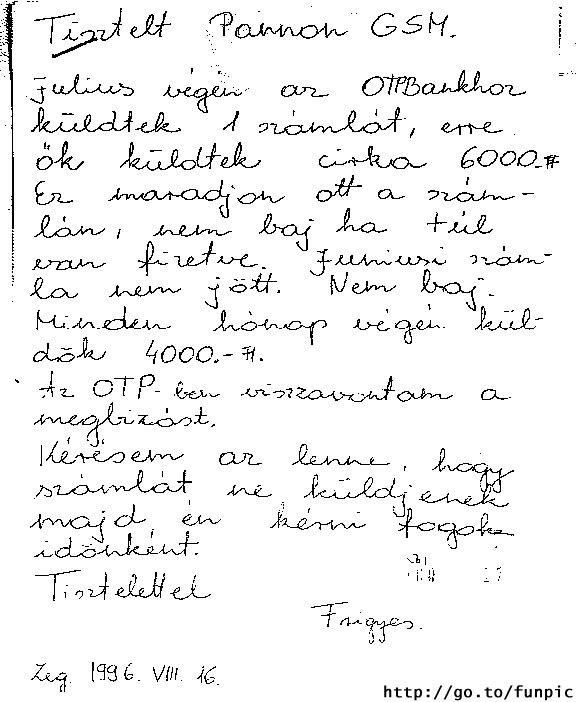 Tisztelt Pannon GSM.
Julius végén az OTPBankhoz
küldtek 1 számlát, erre
ők küldtek cirka 6000.-Ft
Ez maradjon ott a szám-
lán, nem baj ha túl
van fizetve. Juniusi szám-
la nem jött. Nem baj.
Minden hónap végén kül-
dök 4000.-Ft.
Az OTP-ben visszavontam a
megbizást.
Kérésem az lenne, hogy
számlát ne küldjenek
majd én kérni fogok
időnként.
Tisztelettel
Frigyes.
Zeg. 1996. VIII. 16.
http://go.to/funpic